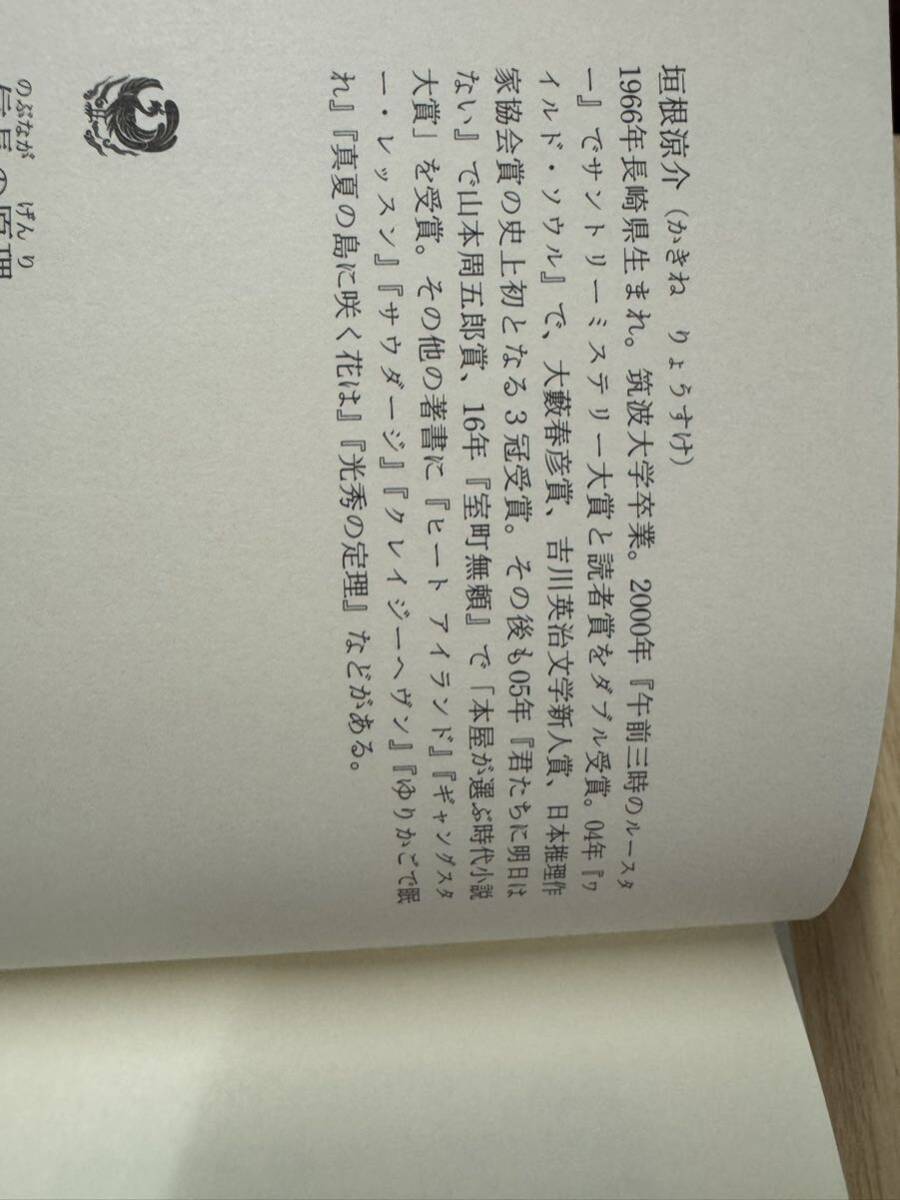 垣根涼介（かきね りょうすけ）
1966年長崎県生まれ。筑波大学卒業。2000年『午前三時のルースタ
ー』でサントリーミステリー大賞と読者賞をダブル受賞。04年『ワ
イルド・ソウル』で、大藪春彦賞、吉川英治文学新人賞、日本推理作
家協会賞の史上初となる3冠受賞。その後も05年『君たちに明日は
ない』で山本周五郎賞、16年『室町無頼』で「本屋が選ぶ時代小説
大賞」を受賞。その他の著書に『ヒート アイランド』『ギャングスタ
ー・レッスン』『サウダージ』『クレイジーヘヴン』『ゆりかごで眠
れ』『真夏の島に咲く花は』『光秀の定理』などがある。
のぶなが げんり
信長の原理